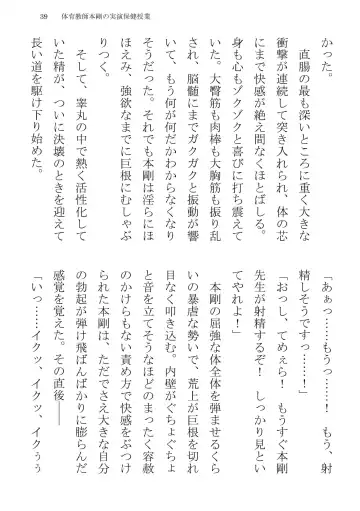 39 体育教師本剛の実演保健授業
かった。
直腸の最も深いところに重く大きな
衝撃が連続して突き入れられ、体の芯
にまで快感が絶え間なくほとばしる。
身も心もゾクゾクと喜びに打ち震えて
いた。大臀筋も肉棒も大胸筋も振り乱
され、脳髄にまでガクガクと振動が響
いて、もう何が何だかわからなくなり
そうだった。それでも本剛は淫らにほ
ほえみ、強欲なまでに巨根にむしゃぶ
りつく。
そして、睾丸の中で熱く活性化して
いた精が、ついに決壊のときを迎えて
長い道を駆け下り始めた。
「あぁっ……もうっ……！　もう、射
精しそうですっ……！」
「おっし、てめぇら！　もうすぐ本剛
先生が射精するぞ！　しっかり見とい
てやれよ！」
本剛の屈強な体全体を弾ませるくら
いの暴虐な勢いで、荒上が巨根を切れ
目なく叩き込む。内壁がぐちょぐちょ
と音を立てそうなほどのまったく容赦
のかけらもない責め方で快感をぶつけ
られた本剛は、ただでさえ大きな自分
の勃起が弾け飛ばんばかりに膨らんだ
感覚を覚えた。その直後――
「いっ……イクッ、イクッ、イクぅぅ